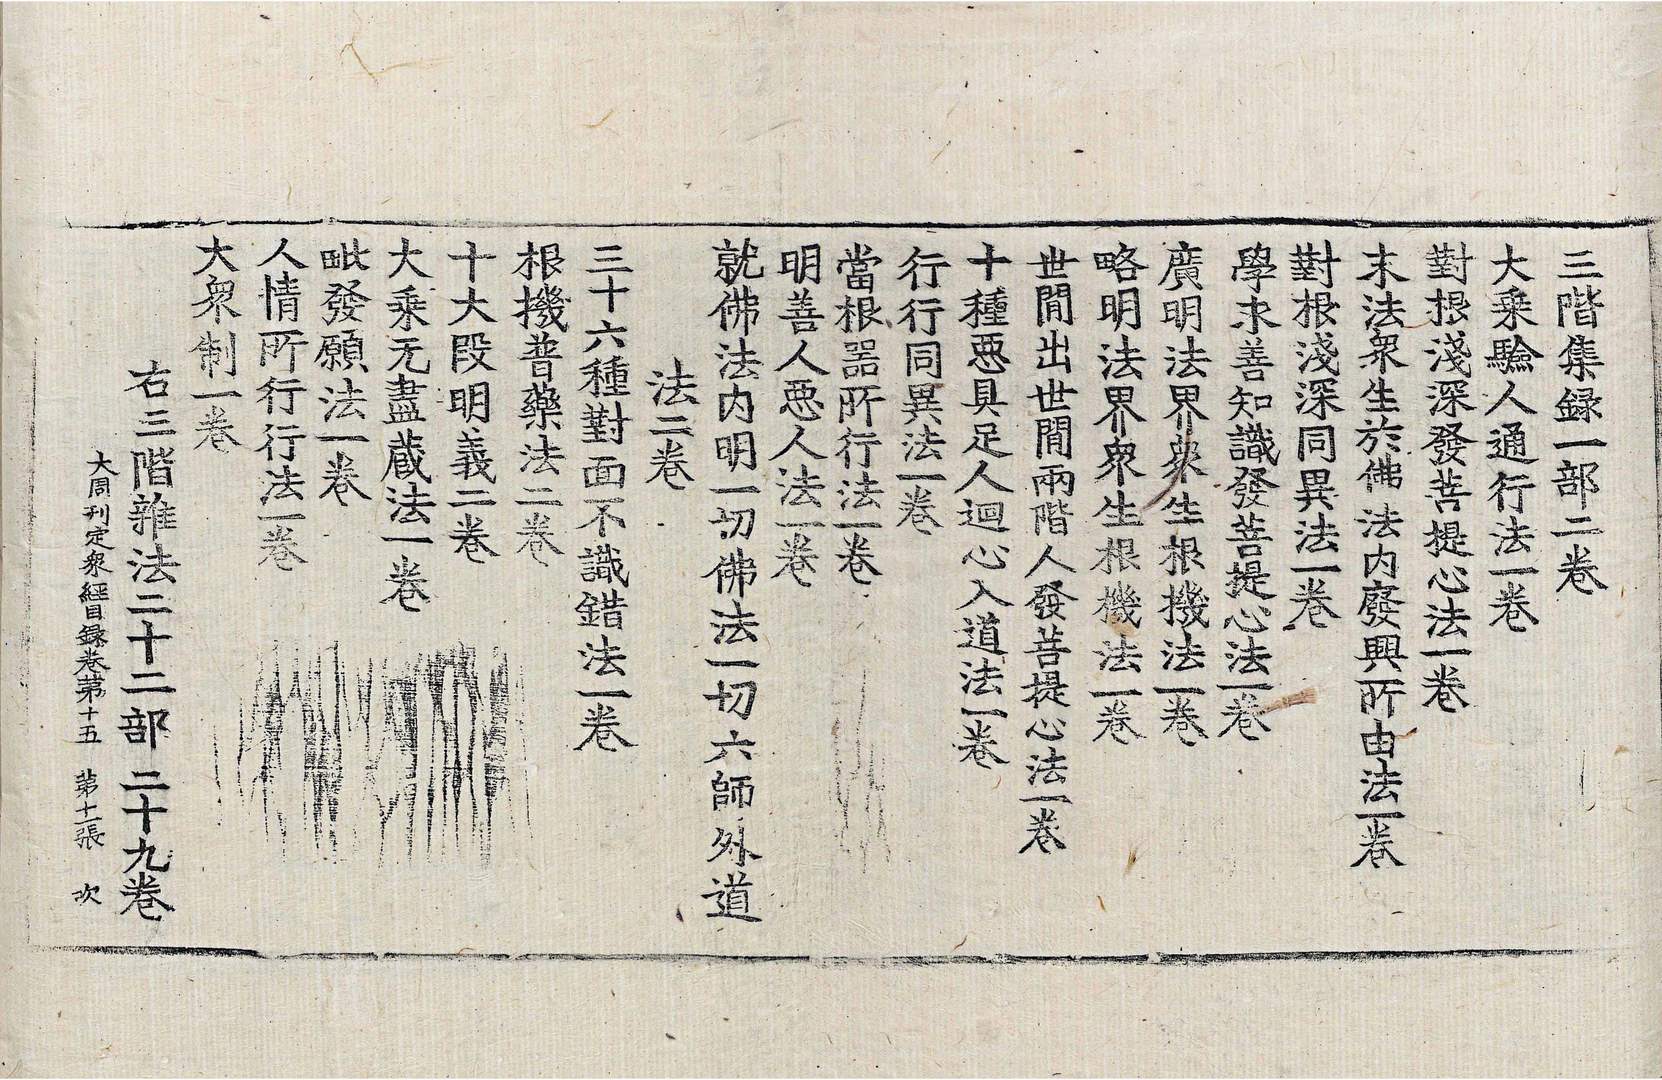 三階集録一部二卷
大乘驗人通行法一卷
對根淺深發菩提心法一卷
末法衆生於佛法内廢興所由法一卷
對根淺深同異法一卷
學求善知識發菩提心法一卷
廣明法界衆生根機法一卷
略明法界衆生根機法一卷
世間出世間兩階人發菩提心法一卷
十種惡具足人迴心入道法一卷
行行同異法一卷
當根器所行法一卷
明善人惡人法一卷
就佛法内明一切佛法一切六師外道
法二卷
三十六種對面不識錯法一卷
根機普藥法二卷
十大段明義二卷
大乘无盡藏法一卷
毗發願法一卷
人情所行行法一卷
大衆制一卷
右三階雜法二十二部 二十九卷
大周刊定衆經目録卷第十五 第十一張 次